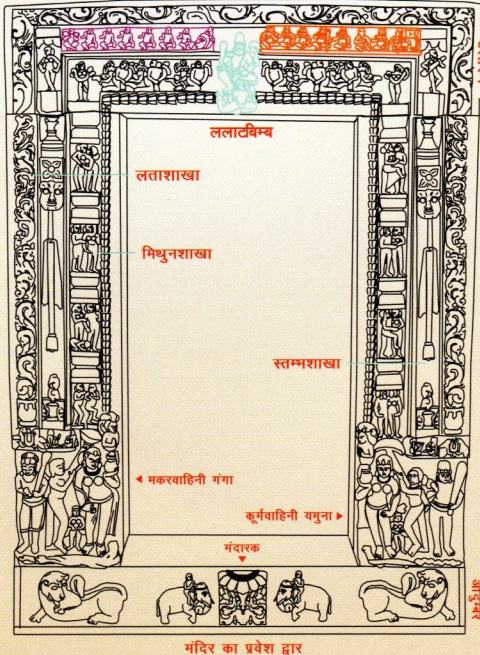 ललाटबिम्ब
लताशाखा
मिथुनशाखा
स्तम्भशाखा
◄ मकरवाहिनी गंगा
कूर्मवाहिनी यमुना ►
मंदारक
▼
मंदिर का प्रवेश द्वार